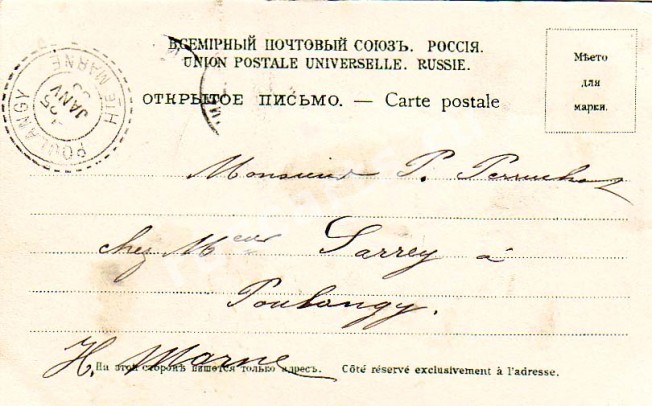 ВСЕМІРНЫЙ ПОЧТОВЫЙ СОЮЗЪ. РОССІЯ.
UNION POSTALE UNIVERSELLE. RUSSIE.
ОТКРЫТОЕ ПИСЬМО. — Carte postale
Мѣсто
для
марки.
POULANGY
Hte MARNE
25
JANV
Monsieur P.
chez Mr Sarrey à
Poulangy.
H. Marne
На этой сторонѣ пишется только адресъ. Côté réservé exclusivement à l'adresse.